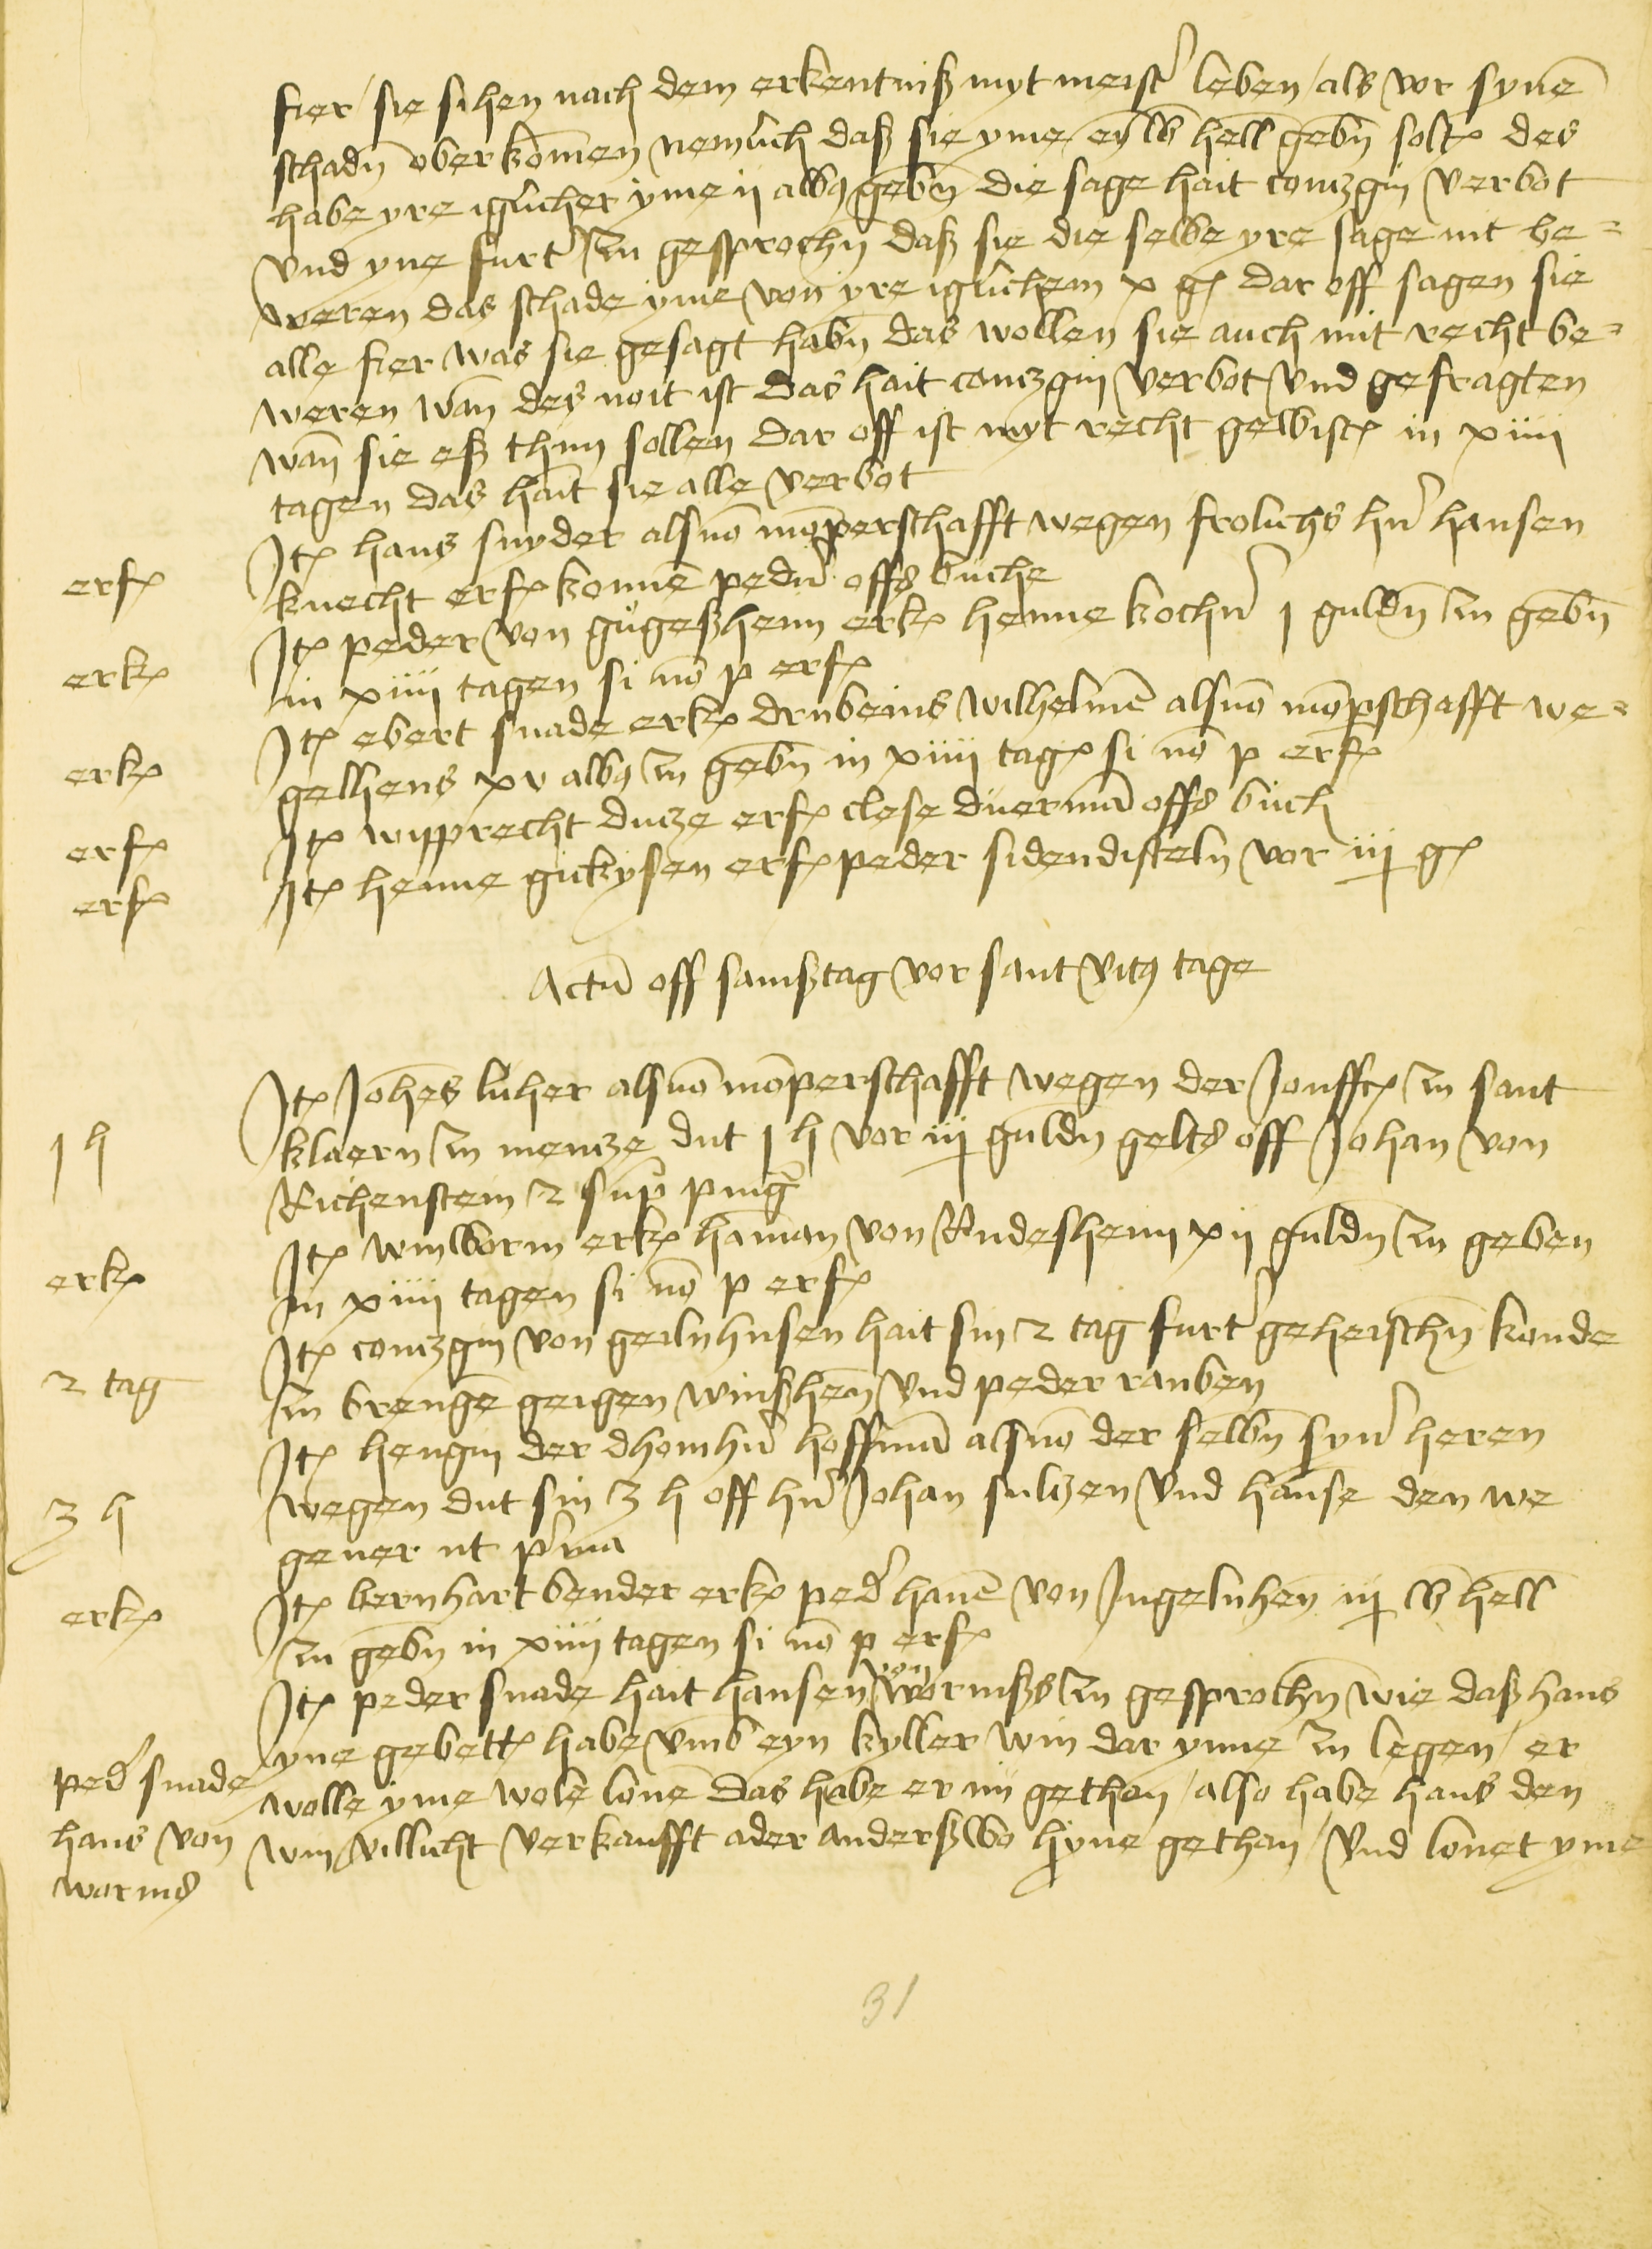 fier / sie sihen nach dem erkentniß myt meist' leben / als vor synē
schadn̄ oberkōmen nemlich daß sie yme eȳ lb hell gebn̄ solt~ des
habe yre iglicher yme ij albꝯ gebn̄ die sage hait contzgin verbot
vnd yne furt' zu gesprochn̄ daß sie die selbe yre sage nit be=
weren das schade yme von yre iglichem x g~ dar off sagen sie
alle fier was sie gesagt habn̄ das wollen sie auch mit recht be=
weren wān des noit ist das hait contzgin verbot vnd gefragten
wān sie eß thun sollen dar off ist myt recht gewist~ in xiiii
tagen das hait sie alle verbot
erf~ Jt~ hans snyder als vō mōperschafft wegen frolichs hn' hansen
knecht erf~ konnē pedn' offs buche
erk~ Jt~ peder von gugeßheim erk~ henne kochn' j guldn̄ zu gebn̄
in xiiii tagen si nō p erf~
erk~ Jt~ ebert snade erk~ drubeins wilhelmē als vō mōpschafft we=
gelhens xv albꝯ zu gebn̄ in xiiii tag~ si nō p erf~
erf~ Jt~ wipprecht dutze erf~ clese duermā offs buch
erf~ Jt~ henne gickysen erf~ peder sidendisteln vor iij g~
Actū off samßtag vor sant vitꝯ tage
j h Jt~ Joh̄es luher als vō mōperschafft wegen der Jonffr~ zu sant
klaern zu mentze dut j h vor iij guldn̄ gelts off Johan von
Richenstein 2 sup̄ ping'
erk~ Jt~ winworm erk~ hāman von Rudesheim xij guldn̄ zu geben
in xiiii tagen si nō p erf~
2 tag Jt~ contzgin von geilnhusen hait sin 2 tag furt' geheischn̄ konde
zu brengē geigen winßhem̄ vnd peder rauben
Jt~ hengin der dhomhn' hoffmā als vō der selbn̄ syn' heren
3 h wegen dut sin 3 h off hn' Johan sultzen vnd hanse den we
gener ut p'ma
erk~ Jt~ bernhart bender erk~ ped' hanē von Jngelnhēn iij lb hell
zu gebn̄ in xiiii tagen si nō p erf~
Jt~ peder snade hait hansen von wormßs zu gesprochn̄ wie daß hans
yne gebett~ habe vmb eyn kyller win dar ynne zu legen / er
ped' snade wolle yme wole lonē das habe er nu gethon / also habe hans den
hans von win villicht verkaufft ader anderßwo hyne gethan / vnd lonet yme
worms
31